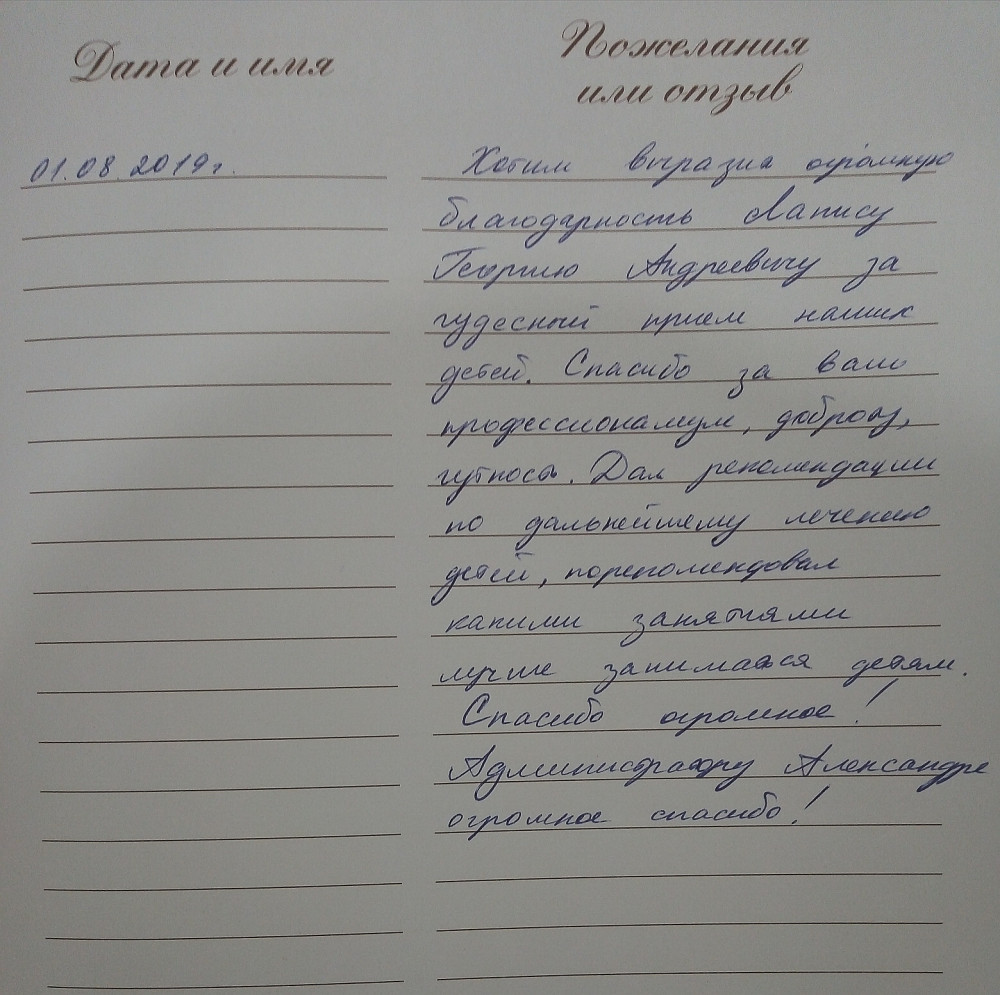 Дата и имя
Пожелания
или отзыв
01.08.2019г.
Хотим выразил огромную
благодарность Лапису
Георгию Андреевичу за
чудесный прием наших
детей. Спасибо за ваш
профессионализм, доброту,
чуткость. Дал рекомендации
по дальнейшему лечению
детей, порекомендовал
какими занятиями
лучше заниматься детям.
Спасибо огромное!
Администратору Александре
огромное спасибо!